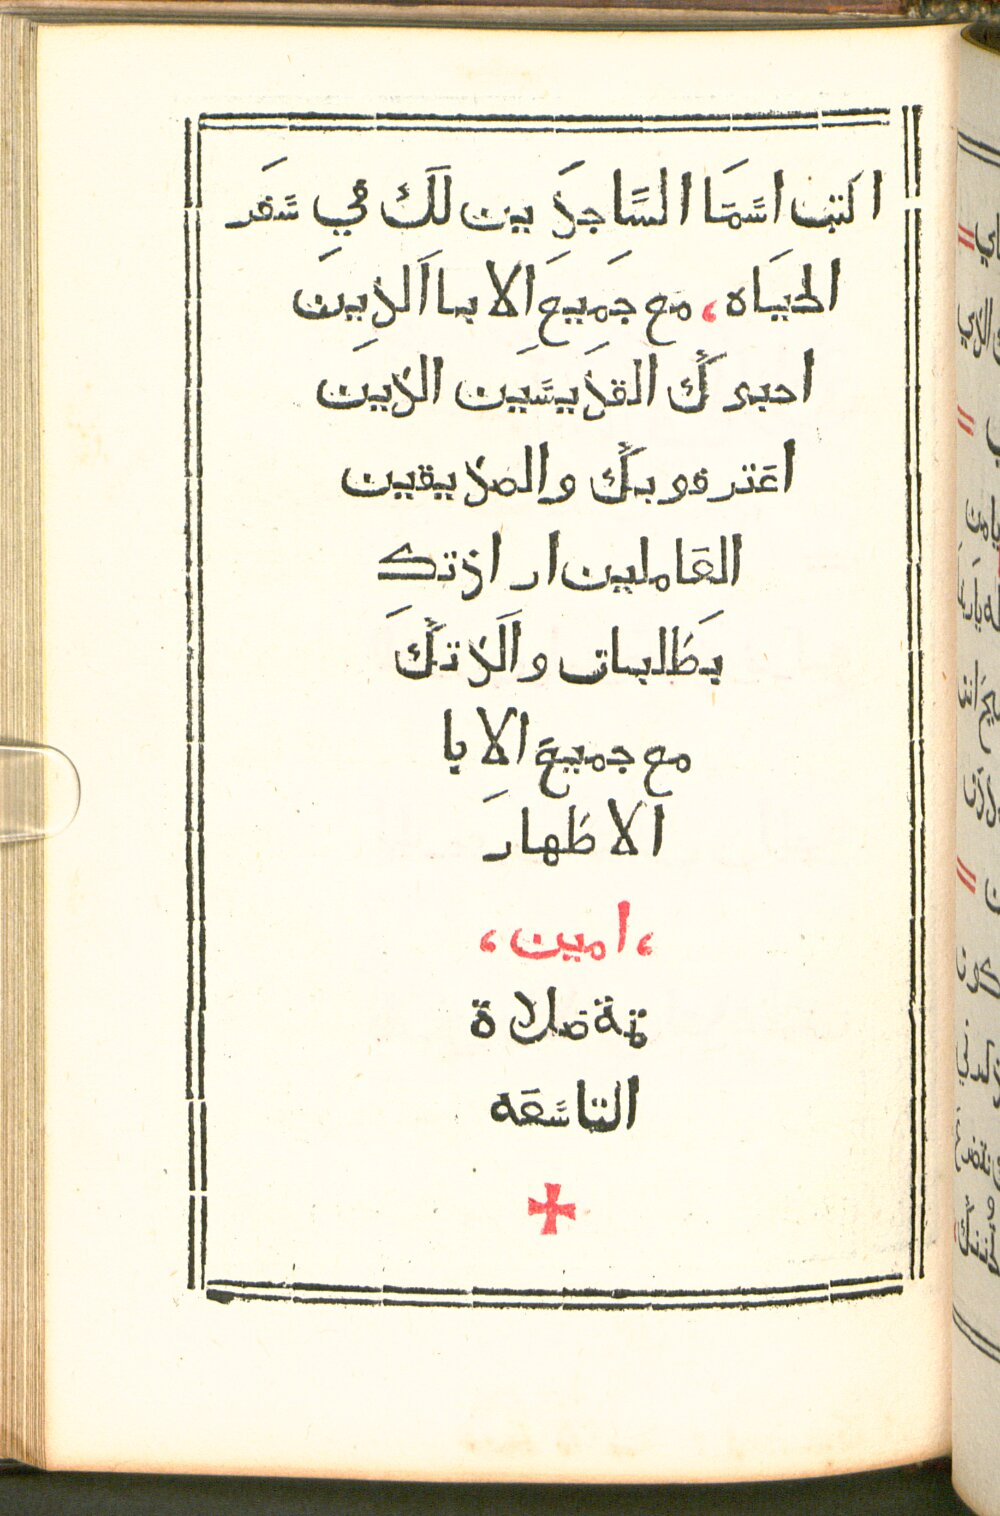 اكتب اسَمَا السَّاجدَ ين لَك فيِ سَفَر
الحيَاه، مع جَمِيعَ الابا اَلذِينَ
احبوكَ القدَيسَين الذينَ
اعَترفو بكَ والصديقين
العَاملين ارادتك
بَطَلبات واَلدتكَ
مع جميعَ الابا
الاطَهارَ
،امين،
تمة ضلاة
التاسَعَه